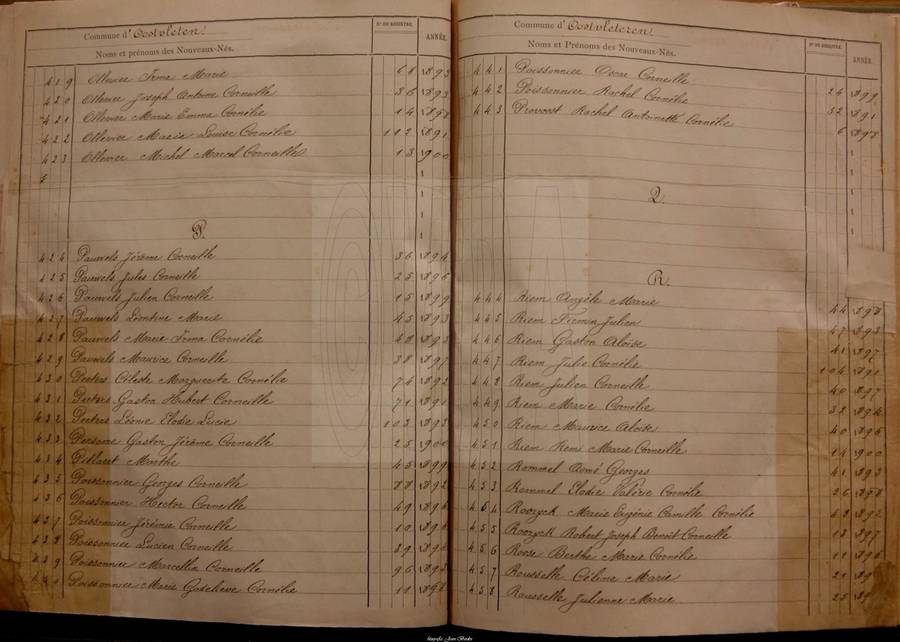 Commune d'Oostvleteren
Noms et prénoms des Nouveaux-Nés.
N° DU REGISTRE.
ANNÉE.
419 Ollevier Irma Marie 66 1893
420 Ollevier Joseph Antoine Corneille 36 1893
421 Ollevier Marie Emma Cornélie 14
422 Ollevier Marie Louise Cornélie 112 1891
423 Ollevier Michel Marcel Corneille 13 1900
P.
424 Pauwels Jérôme Corneille 36 1894
425 Pauwels Jules Corneille 25 1896
426 Pauwels Julien Corneille 15 1899
427 Pauwels Léontine Marie 45 1893
428 Pauwels Marie Irma Cornélie 48 1895
429 Pauwels Maurice Corneille 38 1897
430 Peeters Céleste Marguerite Cornélie 74 1892
431 Peeters Gaston Hubert Corneille 71 1891
432 Peeters Léonie Elodie Lucie 103 1893
433 Persome Gaston Jérôme Corneille 25 1900
434 Pillaert Marthe 45 1899
435 Poissonnier Georges Corneille 1892
436 Poissonnier Hector Corneille 49
437 Poissonnier Jérémie Corneille 10
438 Poissonnier Lucien Corneille
439 Poissonnier Marcellin Corneille 96
440 Poissonnier Marie Godelieve Cornélie 11
Commune d'Oostvleteren
Noms et Prénoms des Nouveaux-Nés.
N° DU REGISTRE.
ANNÉE.
441 Poissonnier Oscar Corneille 24 1899
442 Poissonnier Rachel Cornélie 52 1891
443 Provoost Rachel Antoinette Cornélie 6 1898
Q.
R.
444 Riem Angèle Marie 44 1898
445 Riem Firmin Julien 47 1893
446 Riem Gaston Aloïse 41 1897
447 Riem Julie Cornélie 104 1891
448 Riem Julien Corneille 40 1897
449 Riem Marie Cornélie 32 1894
450 Riem Maurice Aloïse 40 1895
451 Riem Remi Marie Corneille 14 1900
452 Rommel Aimé Georges 41 1893
453 Rommel Elodie Valérie Cornélie 26
454 Roozyck Marie Eugénie Camille Cornélie 1892
455 Roozyck Robert Joseph Benoît Corneille 13 1897
456 Roose Berthe Marie Cornélie 11
457 Rousselle Céline Marie
458 Rousselle Julienne Marie 25